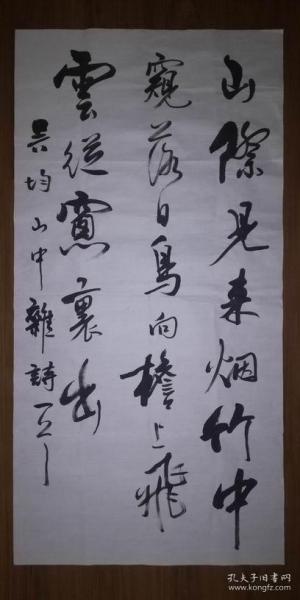 山際見来烟竹中
窺落日鳥向檐上飛
雲從窻裏出
吴均山中雜詩
孔夫子旧书网
kongfz.com